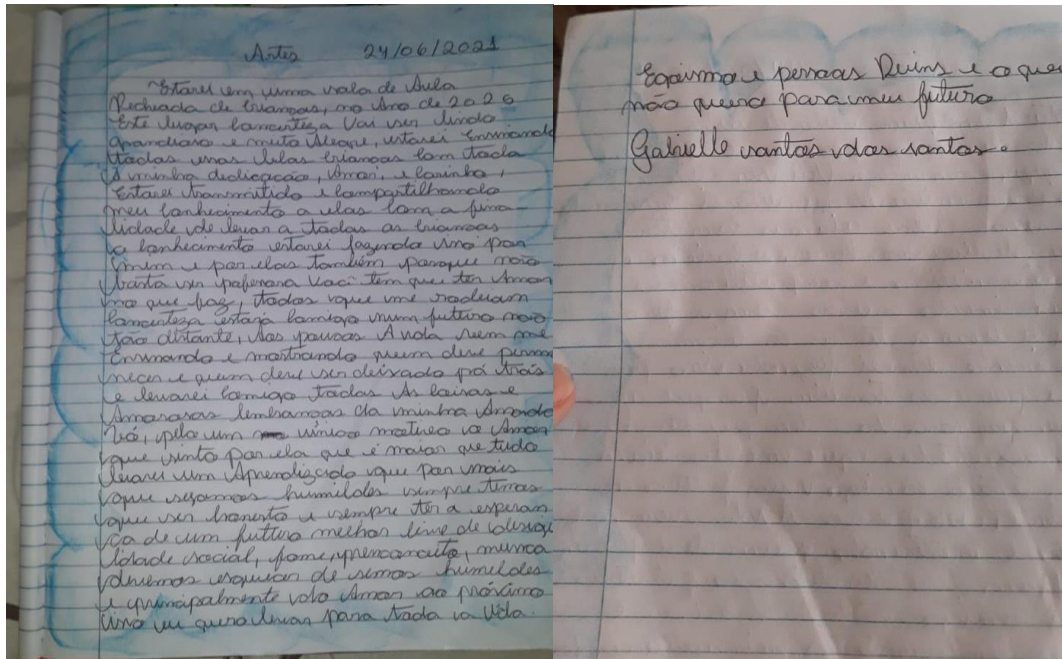 Artes 24/06/2021
Estarei em uma sala de Aula
Recheada de crianças, no Ano de 2026
Este lugar comcerteza Vai ser lindo
grandioso e muito Alegre, estarei Ensinando
todas umas belas crianças com toda
A minha dedicação, Amor, e carinho,
Estarei transmitido e compartilhando
meu conhecimento a elas com a fina-
lidade de levar a todas as crianças
o conhecimento estarei fazendo isso por
mim e por elas também porque não
basta ser professora você tem que ter Amor
no que faz, todos que me rodeiam
comcerteza estará comigo num futuro não
tão distante, Aos poucos A vida vem me
Ensinando e mostrando quem deve perma
necer e quem deve ser deixado pra trás
e levarei comigo todas As coisas e
Amorosas lembranças da minha Amada
Vó, pelo um único motivo o Amor
que sinto por ela que é maior que tudo
levarei um Aprendizado que por mais
que sejamos humildes sempre temos
que ser honesto e sempre ter a esperan
ça de um futuro melhor livre de desigua
lidade social, fome, preconceito, nunca
devemos esquecer de sermos humildes
e principalmente do Amor ao próximo
isso eu quero levar para toda a Vida.
Egoismo e pessoas Ruins e o que
não quero para meu futuro
Gabrielle santos dos santos.